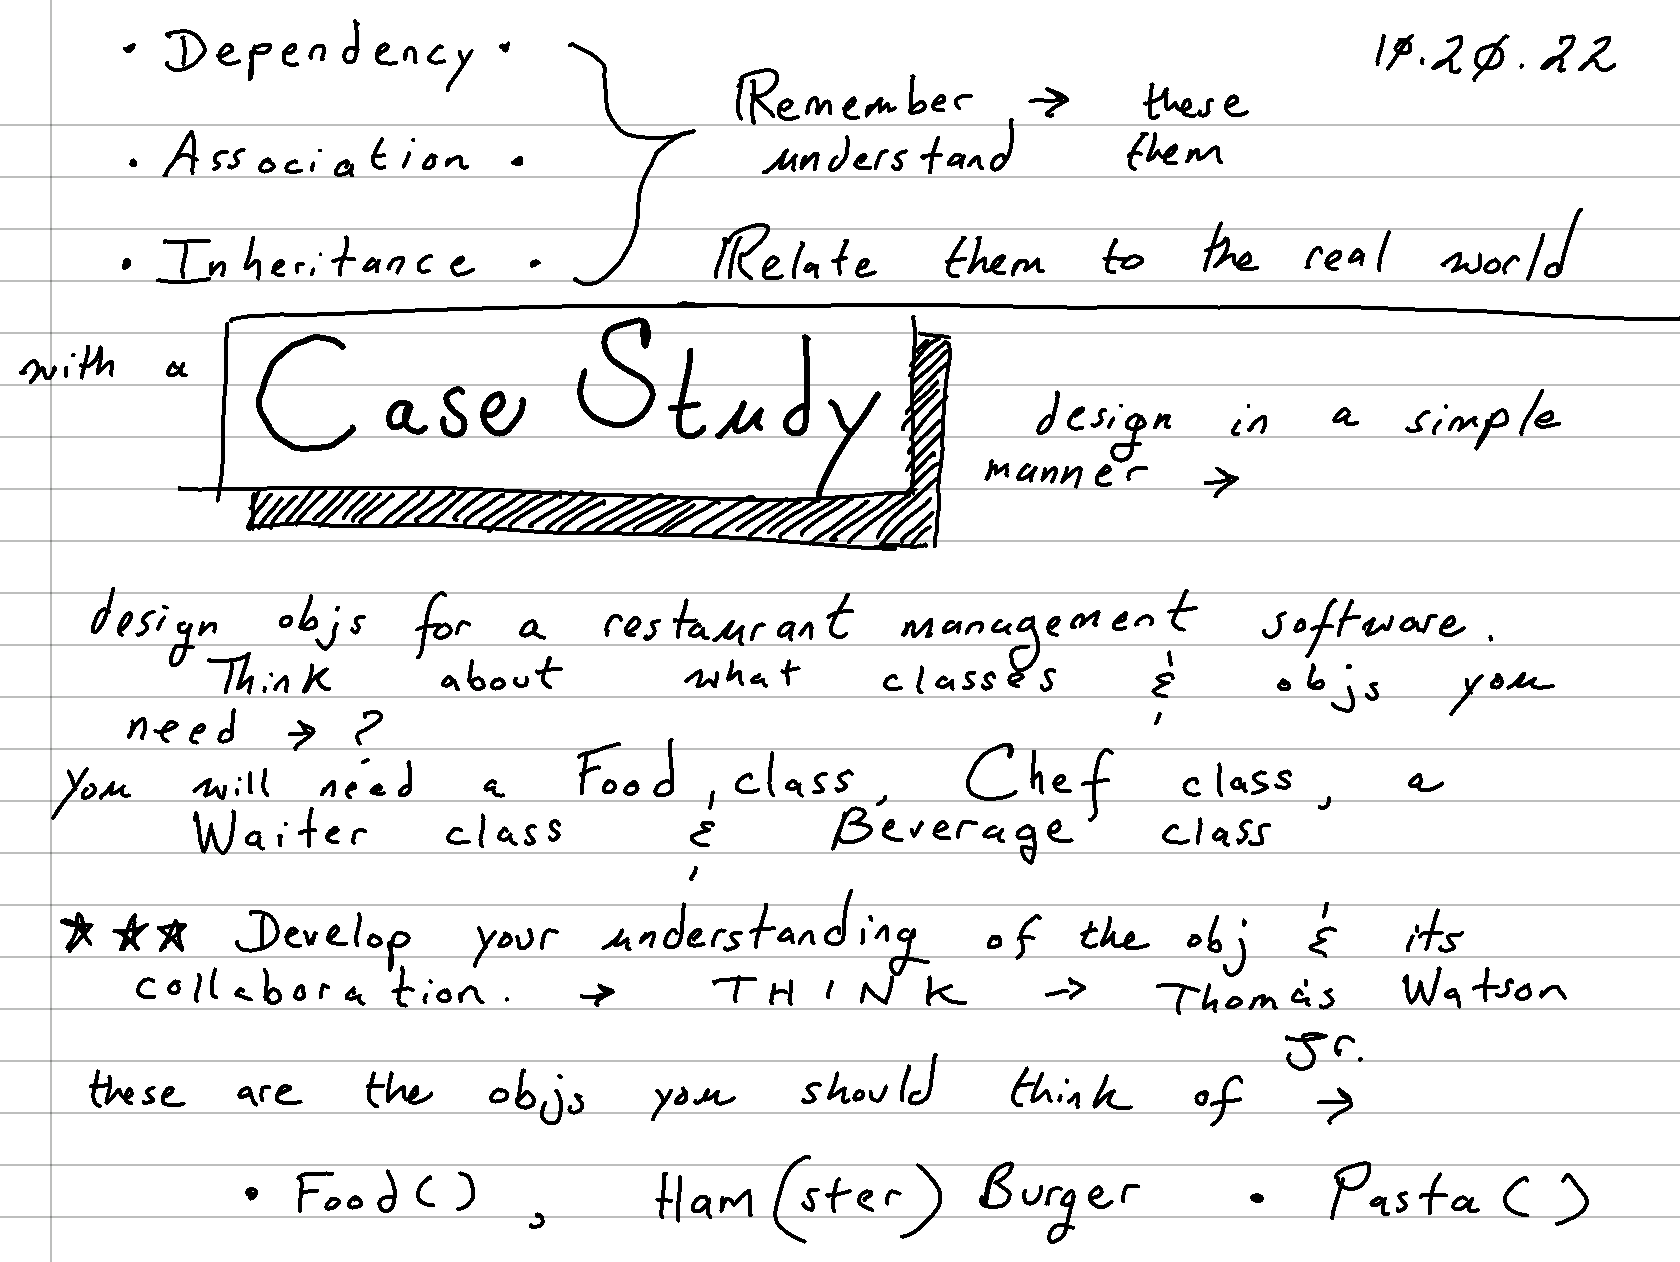 • Dependency •
10.20.22
Remember → these
• Association •
understand them
• Inheritance •
Relate them to the real world
with a Case Study
design in a simple
manner →
design objs for a restaurant management software.
Think about what classes & objs you
need → ?
you will need a Food class, Chef class, a
Waiter class & Beverage class
★★★ Develop your understanding of the obj & its
collaboration. → THINK → Thomas Watson
Jr.
these are the objs you should think of →
• Food() , Ham(ster) Burger • Pasta()